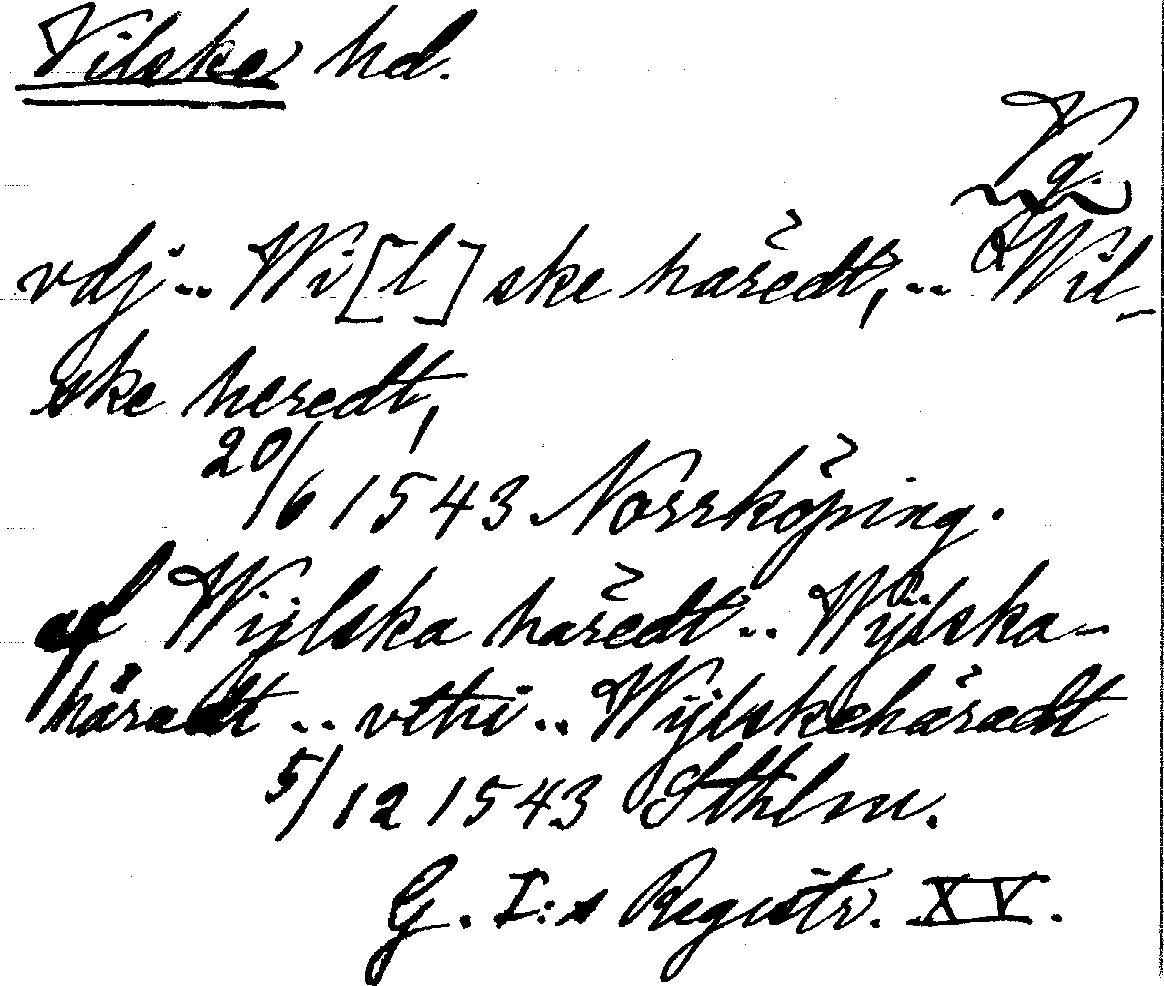 Vilske hd.
Vg.
vdj .. Wi[l]ske häredt, .. Wil-
ske heredt,
20/6 1543 Norrköping.
af Wijlska häredt .. Wijlska-
häradt .. vthi .. Wijlskehäradt
5/12 1543 Sthlm.
G. I:s Registr. XV.